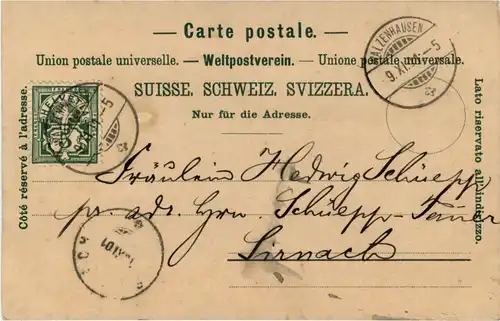 — Carte postale. —
Union postale universelle. — Weltpostverein. — Unione postale universale.
SUISSE. SCHWEIZ. SVIZZERA.
Nur für die Adresse.
Côté réservé à l'adresse.
Lato riservato all'indirizzo.
WALZENHAUSEN
9.XI. –5
Fräulein Hedwig Schüepp
pr. adr. Hrn. Schüepp-Tanner
Sirnach